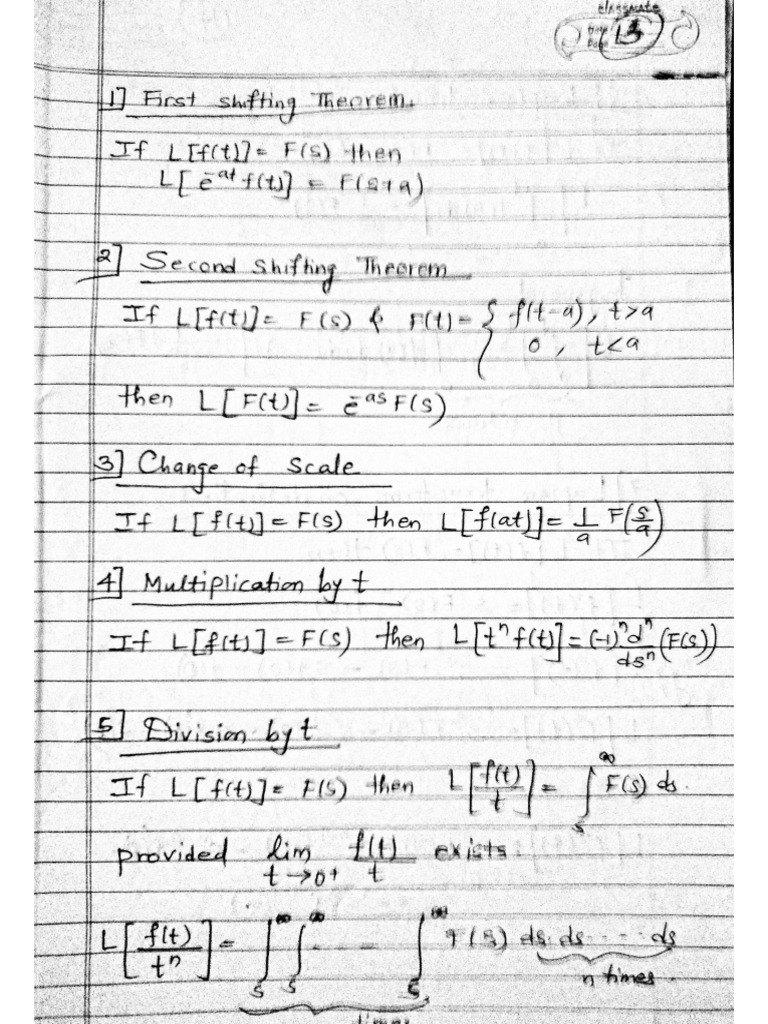 classmate
Date
Page 13
1] First shifting Theorem.
If L[f(t)] = F(s) then
L[e^-at f(t)] = F(s+a)
2] Second Shifting Theorem
If L[f(t)] = F(s) & F(t) = { f(t-a), t>a
0, t<a
then L[F(t)] = e^-as F(s)
3] Change of scale
If L[f(t)] = F(s) then L[f(at)] = 1/a F(s/a)
4] Multiplication by t
If L[f(t)] = F(s) then L[t^n f(t)] = (-1)^n d^n/ds^n (F(s))
5] Division by t
If L[f(t)] = F(s) then L[f(t)/t] = ∫_s^∞ F(s) ds.
provided lim t→0+ f(t)/t exists.
L[f(t)/t^n] = ∫_s^∞ ∫_s^∞ - - - ∫_s^∞ F(s) ds. ds. . . . . ds
n times.
times